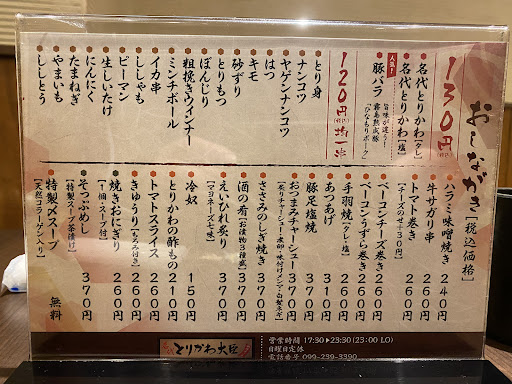 おしながき[税込価格]
130円(税込)
名代とりかわ[タレ]
名代とりかわ[塩]
人気!
豚バラ
旨味が違う!
霧島熟成豚
「ひなもりポーク」
120円(税込)均一串
とり身
ナンコツ
ヤゲンナンコツ
はつ
キモ
砂ずり
とりもつ
ぼんじり
粗挽きウインナー
ミンチボール
イカ串
ししゃも
ピーマン
生しいたけ
にんにく
たまねぎ
やまいも
ししとう
ハラミ味噌焼き 240円
牛サガリ串 260円
トマト巻き 260円
[チーズのせ+30円]
ベーコンチーズ巻き 260円
ベーコンうずら巻き 260円
手羽焼[タレ・塩] 260円
あつあげ 310円
豚足塩焼 370円
おつまみチャーシュー 370円
[炙りチャーシュー・煮卵・味付けメンマ・白髪ネギ]
ささみのしぎ焼き 370円
酒の肴[お漬物3種盛] 370円
えいひれ炙り 370円
[マヨネーズ七味]
冷奴 150円
とりかわの酢もの 210円
トマトスライス 260円
きゅうり[もろみ付き] 260円
焼きおにぎり 260円
[1個、スープ付]
ぞっぷめし 370円
[特製スープ茶漬け]
特製〆スープ 無料
[天然コラーゲン入り]
とりかわ大臣
営業時間 17:30▶23:30(23:00 LO)
日曜日定休
電話番号 099-239-3390